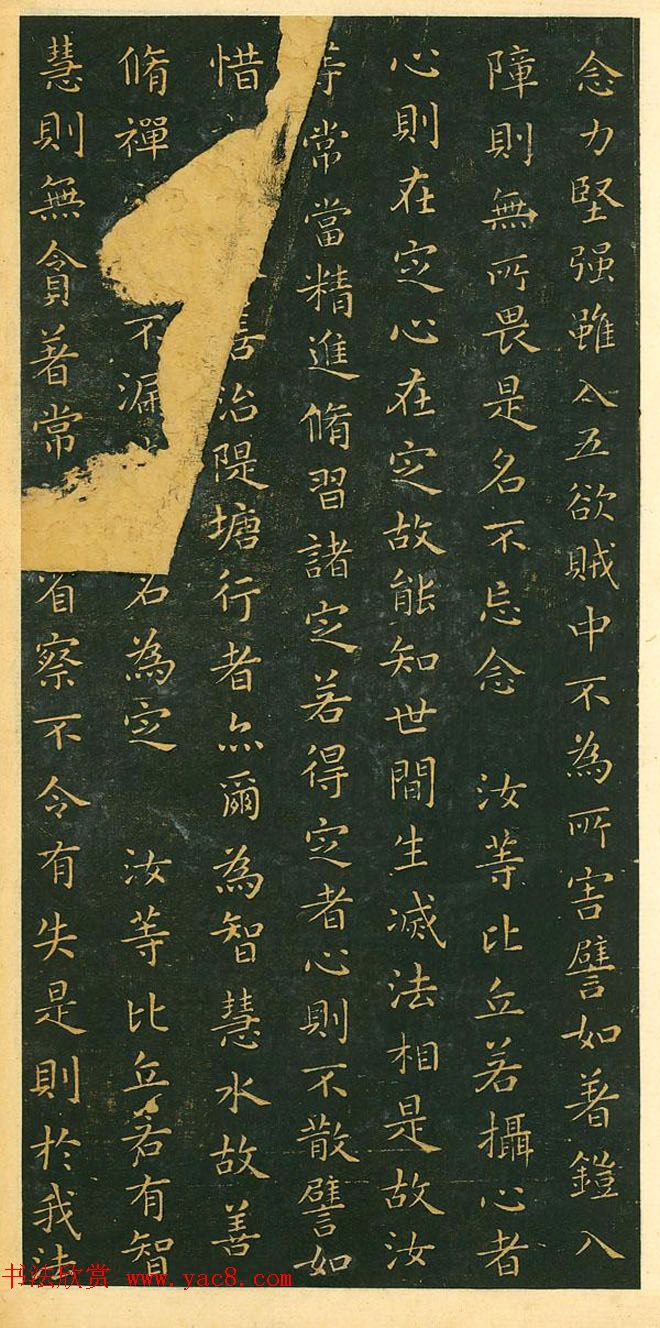 念力堅强雖入五欲賊中不為所害譬如著鎧入
障則無所畏是名不忘念 汝等比丘若攝心者
心則在定心在定故能知世間生滅法相是故汝
等常當精進脩習諸定若得定者心則不散譬如
惜 善治隄塘行者亦爾為智慧水故善
脩禪 不漏 名為定 汝等比丘若有智
慧則無貪著常 省察不令有失是則於我法
书法欣赏 www.yac8.com